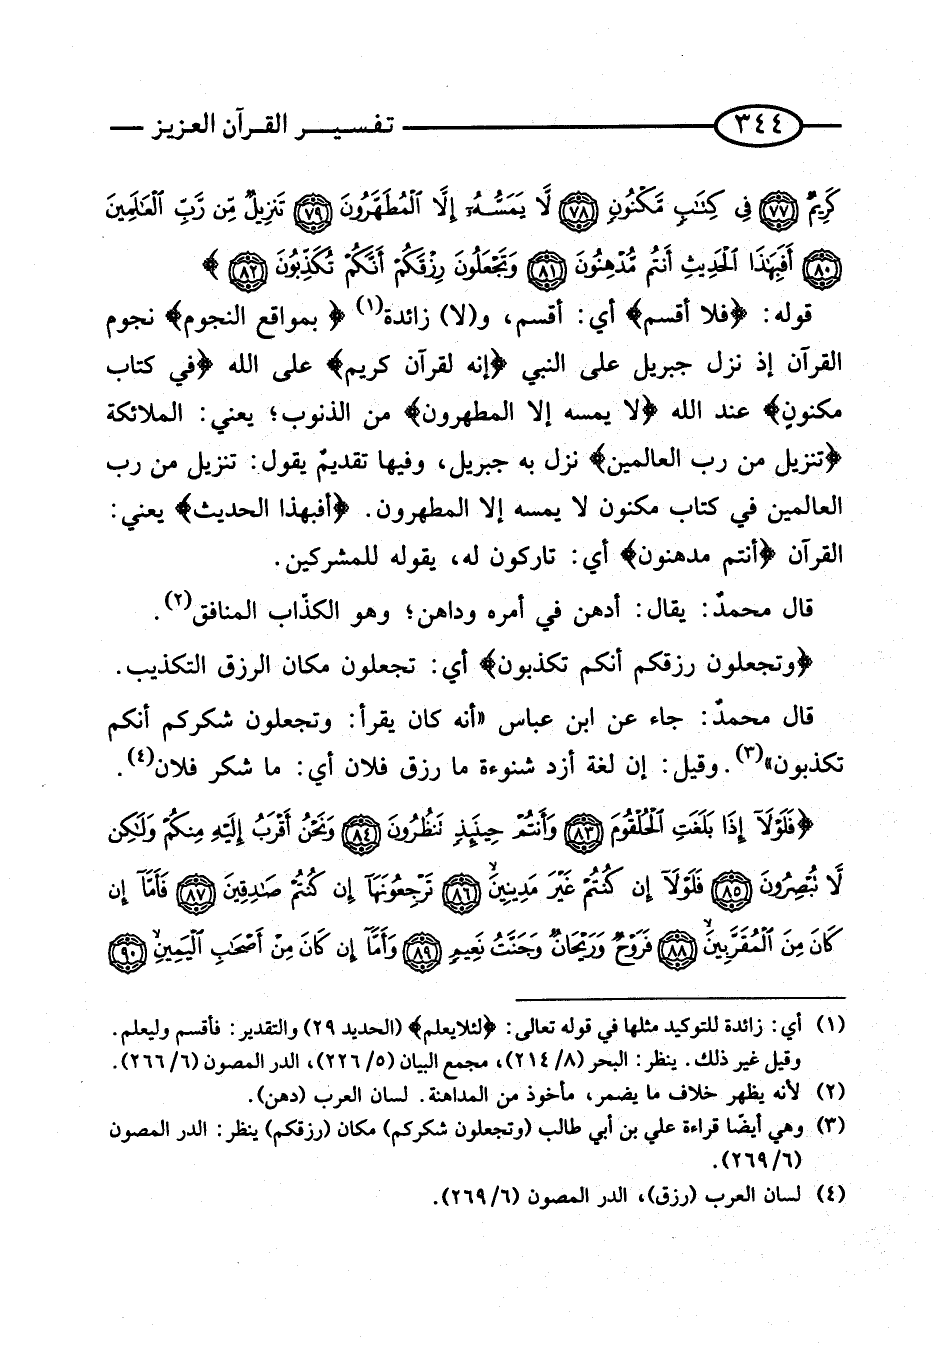 ٣٤٤ تفسير القرآن العزيز
كَرِيمٌ ﴿٧٧﴾ فِى كِتَٰبٍ مَّكْنُونٍ ﴿٧٨﴾ لَّا يَمَسُّهُۥٓ إِلَّا ٱلْمُطَهَّرُونَ ﴿٧٩﴾ تَنزِيلٌ مِّن رَّبِّ ٱلْعَٰلَمِينَ
﴿٨٠﴾ أَفَبِهَٰذَا ٱلْحَدِيثِ أَنتُم مُّدْهِنُونَ ﴿٨١﴾ وَتَجْعَلُونَ رِزْقَكُمْ أَنَّكُمْ تُكَذِّبُونَ ﴿٨٢﴾ ﴾
قوله: ﴿فلا أقسم﴾ أي: أقسم، و(لا) زائدة(١) ﴿ بمواقع النجوم﴾ نجوم
القرآن إذ نزل جبريل على النبي ﴿إنه لقرآن كريم﴾ على الله ﴿في كتاب
مكنونٍ﴾ عند الله ﴿لا يمسه إلا المطهرون﴾ من الذنوب؛ يعني: الملائكة
﴿تنزيل من رب العالمين﴾ نزل به جبريل، وفيها تقديمٌ يقول: تنزيل من رب
العالمين في كتاب مكنون لا يمسه إلا المطهرون. ﴿أفبهذا الحديث﴾ يعني:
القرآن ﴿أنتم مدهنون﴾ أي: تاركون له، يقوله للمشركين.
قال محمدٌ: يقال: أدهن في أمره وداهن؛ وهو الكذّاب المنافق(٢).
﴿وتجعلون رزقكم أنكم تكذبون﴾ أي: تجعلون مكان الرزق التكذيب.
قال محمدٌ: جاء عن ابن عباس «أنه كان يقرأ: وتجعلون شكركم أنكم
تكذبون»(٣). وقيل: إن لغة أزد شنوءة ما رزق فلان أي: ما شكر فلان(٤).
﴿فَلَوْلَآ إِذَا بَلَغَتِ ٱلْحُلْقُومَ ﴿٨٣﴾ وَأَنتُمْ حِينَئِذٍ تَنظُرُونَ ﴿٨٤﴾ وَنَحْنُ أَقْرَبُ إِلَيْهِ مِنكُمْ وَلَٰكِن
لَّا تُبْصِرُونَ ﴿٨٥﴾ فَلَوْلَآ إِن كُنتُمْ غَيْرَ مَدِينِينَ ﴿٨٦﴾ تَرْجِعُونَهَآ إِن كُنتُمْ صَٰدِقِينَ ﴿٨٧﴾ فَأَمَّآ إِن
كَانَ مِنَ ٱلْمُقَرَّبِينَ ﴿٨٨﴾ فَرَوْحٌ وَرَيْحَانٌ وَجَنَّتُ نَعِيمٍ ﴿٨٩﴾ وَأَمَّآ إِن كَانَ مِنْ أَصْحَٰبِ ٱلْيَمِينِ ﴿٩٠﴾
(١) أي: زائدة للتوكيد مثلها في قوله تعالى: ﴿لئلايعلم﴾ (الحديد ٢٩) والتقدير: فأقسم وليعلم.
وقيل غير ذلك. ينظر: البحر (٨/ ٢١٤)، مجمع البيان (٥/ ٢٢٦)، الدر المصون (٦/ ٢٦٦).
(٢) لأنه يظهر خلاف ما يضمر، مأخوذ من المداهنة. لسان العرب (دهن).
(٣) وهي أيضًا قراءة علي بن أبي طالب (وتجعلون شكركم) مكان (رزقكم) ينظر: الدر المصون
(٦/ ٢٦٩).
(٤) لسان العرب (رزق)، الدر المصون (٦/ ٢٦٩).